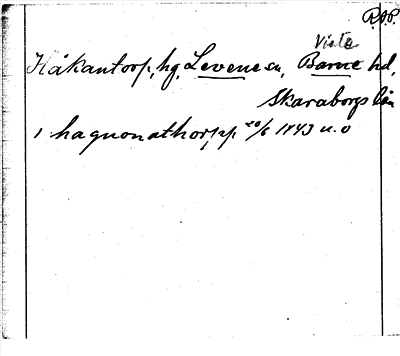 R.A.P.
Viste
Håkantorp, hg, Levene sn, Barne hd,
Skaraborgs län
1 haquonathorpp 20/6 1443 u.o